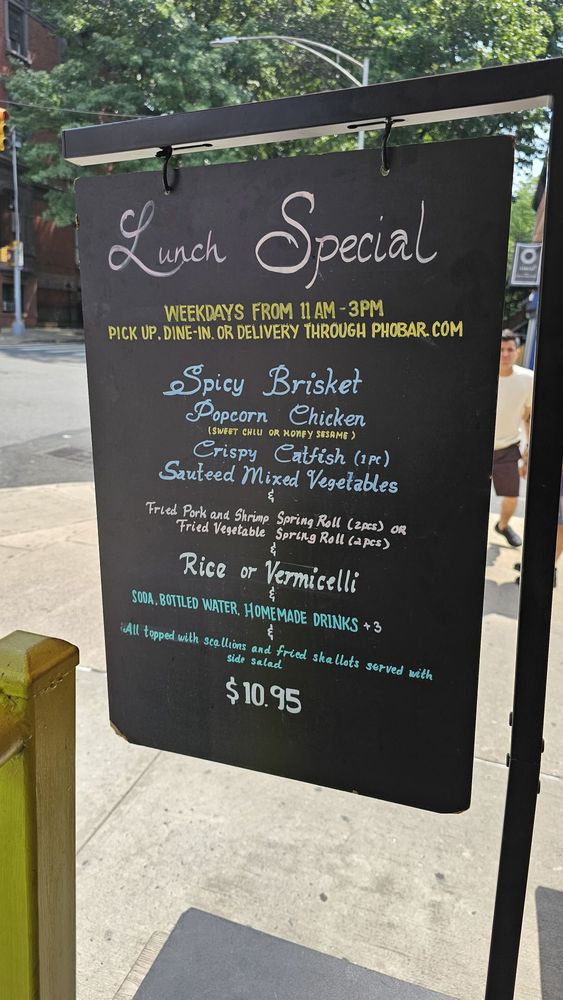 Lunch Special
WEEKDAYS FROM 11 AM - 3PM
PICK UP, DINE-IN, OR DELIVERY THROUGH PHOBAR.COM
Spicy Brisket
Popcorn Chicken
(SWEET CHILI OR HONEY SESAME)
Crispy Catfish (1PC)
Sauteed Mixed Vegetables
&
Fried Pork and Shrimp Spring Roll (2pcs) OR
Fried Vegetable Spring Roll (2pcs)
&
Rice or Vermicelli
&
SODA, BOTTLED WATER, HOMEMADE DRINKS +3
&
All topped with scallions and fried shallots served with
side salad
$10.95